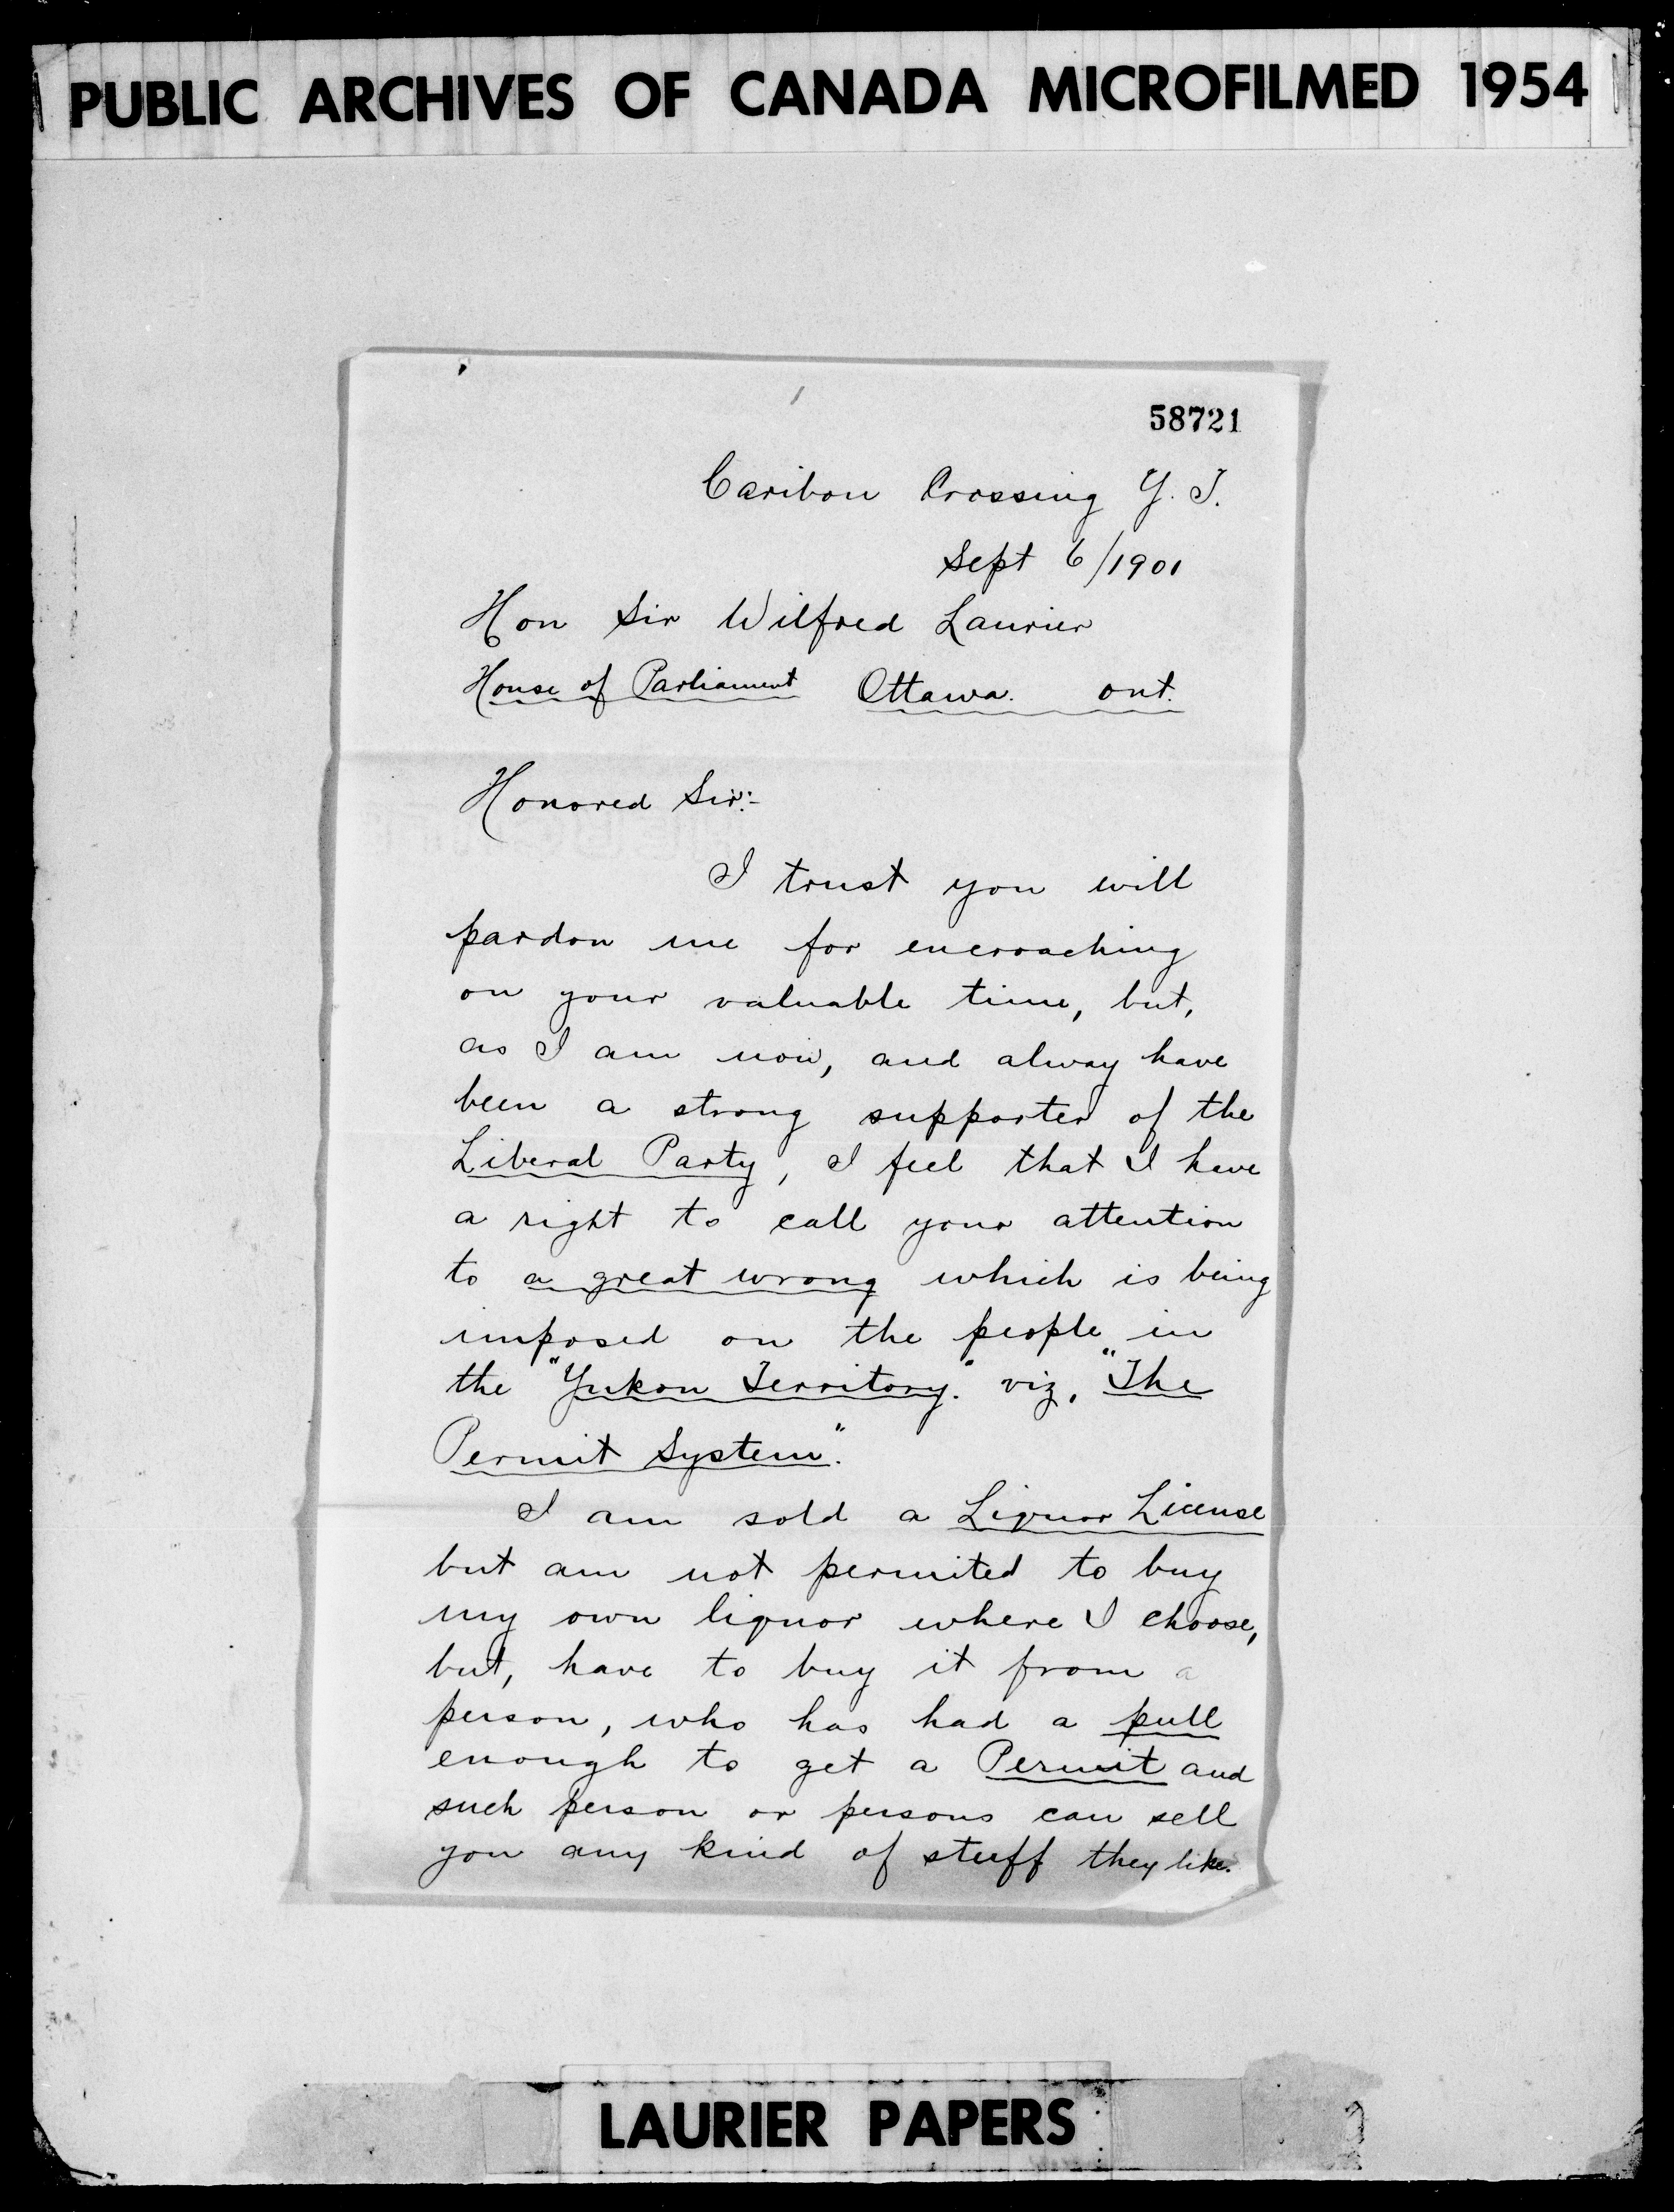 PUBLIC ARCHIVES OF CANADA MICROFILMED 1954
58721
Caribou Crossing Y. T.
Sept 6/1901
Hon Sir Wilfred Laurier
House of Parliament Ottawa. Ont.
Honored Sir:-
I trust you will
pardon me for encroaching
on your valuable time, but,
as I am now, and alway have
been a strong supporter of the
Liberal Party, I feel that I have
a right to call your attention
to a great wrong which is being
imposed on the people in
the "Yukon Territory." viz, "The
Permit System."
I am sold a Liquor License
but am not permited to buy
my own liquor where I choose,
but, have to buy it from a
person, who has had a pull
enough to get a Permit and
such person or persons can sell
you any kind of stuff they like.
LAURIER PAPERS